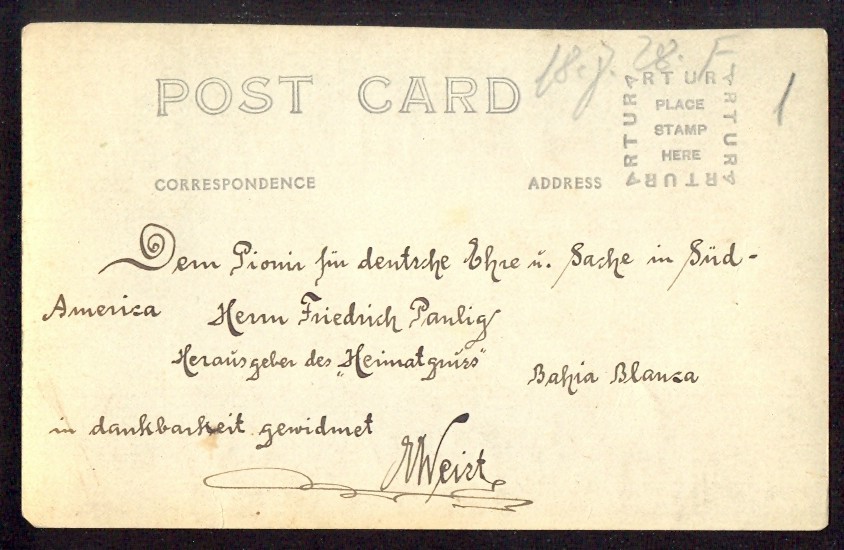 18.7.28. F
POST CARD
ARTURA
ARTURA
PLACE
STAMP
HERE
ARTURA
ARTURA
1
CORRESPONDENCE
ADDRESS
Dem Pionir für deutsche Ehre u. Sache in Süd-
America Herrn Friedrich Paulig
Herausgeber des „Heimatgruss"
Bahia Blanca
in dankbarkeit gewidmet
Weist